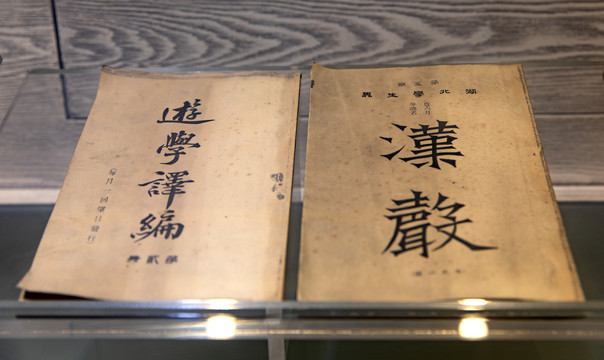 遊學譯編
每月一回望日發行
第貳冊
湖北學生界
漢聲